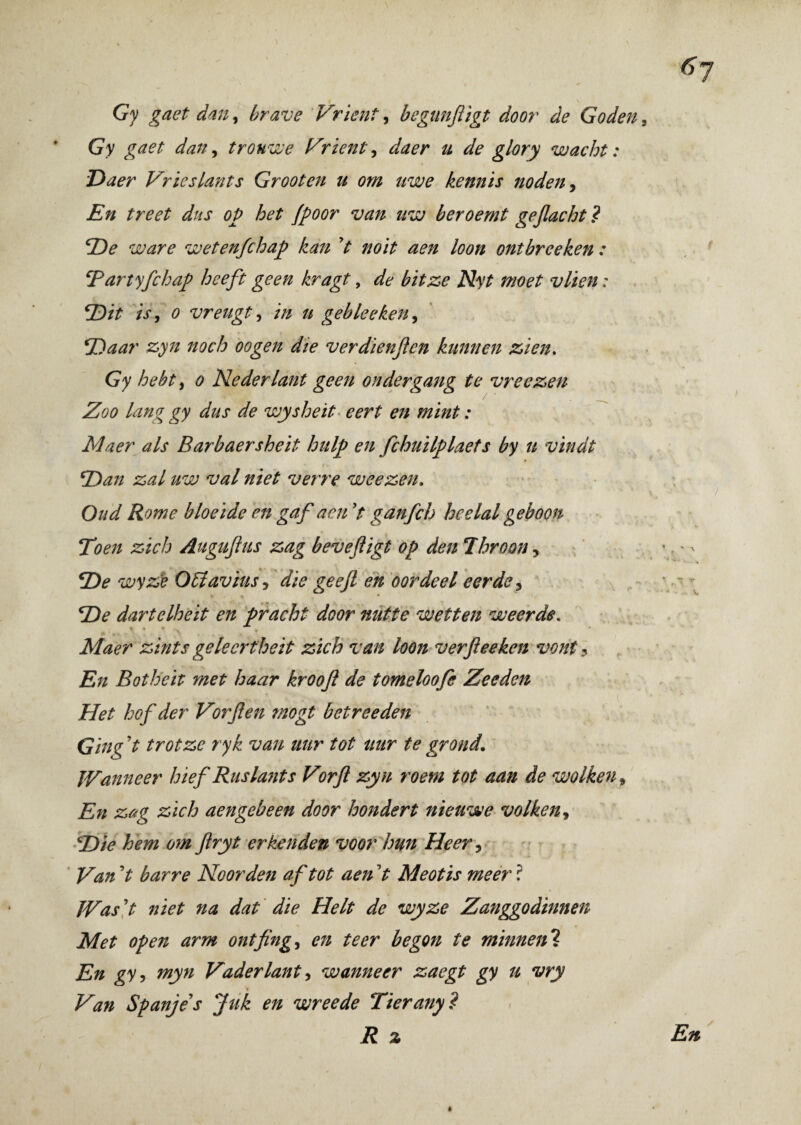 67
Gy gaet dan, brave Vrient, begunſtigt door de Goden,
Gy gaet dan, trouwe Vrient, daer u de glory wacht:
Daer Vrieslants Grooten u om uwe kennis noden,
En treet dus op het ſpoor van uw beroemt geſlacht?
De ware wetenſchap kan 't noit aen loon ontbreeken:
Partyſchap heeft geen kragt, de bitze Nyt moet vlien:
Dit is, o vreugt, in u gebleeken,
Daar zyn noch oogen die verdienſten kunnen zien.
Gy hebt, o Nederlant geen ondergang te vreezen
Zoo lang gy dus de wysheit eert en mint:
Maer als Barbaersheit hulp en ſchuilplaets by u vindt
Dan zal uw val niet verre weezen.
Oud Rome bloeide en gaf aen 't ganſch heelal geboon
Toen zich Auguſtus zag beveſtigt op den Throon,
De wyze Octavius, die geeſt en oordeel eerde,
De dartelheit en pracht door nutte wetten weerde.
Maer zints geleertheit zich van loon verſteeken vont,
En Botheit met haar krooſt de tomelooſe Zeeden
Het hof der Vorſten mogt betreeden
Ging't trotze ryk van uur tot uur te grond.
Wanneer hief Ruslants Vorſt zyn roem tot aan de wolken,
En zag zich aengebeen door hondert nieuwe volken,
Die hem om ſtryt erkenden voor hun Heer,
Van't barre Noorden af tot aen't Meotis meer?
Was't niet na dat die Helt de wyze Zanggodinnen
Met open arm ontfing, en teer begon te minnen?
En gy, myn Vaderlant, wanneer zaegt gy u vry
Van Spanje's Juk en wreede Tierany?
R 2
En